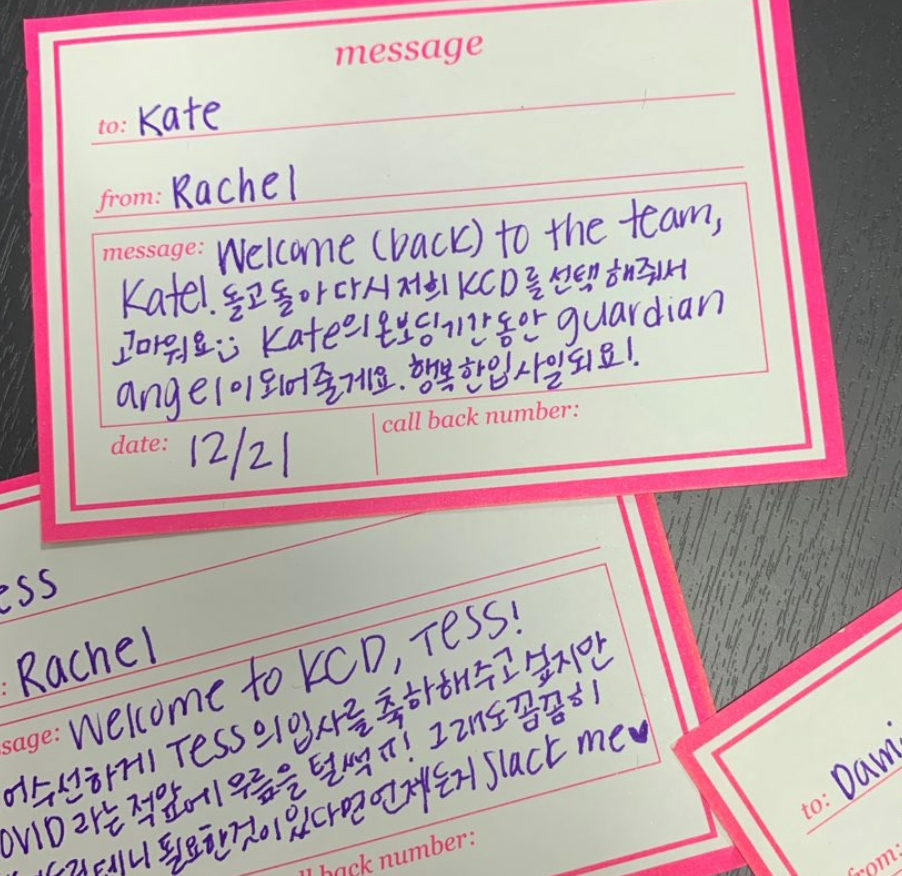 message
to: Kate
from: Rachel
message: Welcome (back) to the team,
Kate! 돌고돌아 다시 저희 KCD를 선택해줘서
고마워요:) Kate의 온보딩기간동안 guardian
angel이 되어줄게요. 행복한입사일되요!
date: 12/21
call back number:
ess
: Rachel
sage: Welcome to KCD, Tess!
어수선하게 Tess의 입사를 축하해주고싶지만
OVID라는 적앞에 무릎을 털썩ㅠ! 그래도 꼼꼼히
테니 필요한것이있다면언제든지 Slack me♥
ll back number:
to: Dami
from: